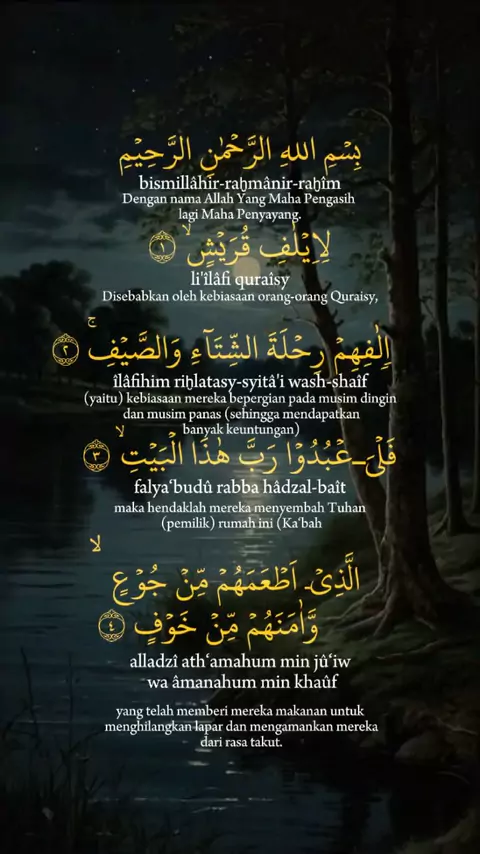 بِسْمِ اللهِ الرَّحْمٰنِ الرَّحِيْمِ
bismillâhir-raḫmânir-raḫîm
Dengan nama Allah Yang Maha Pengasih
lagi Maha Penyayang.
لِاِيْلٰفِ قُرَيْشٍۙ ١
li'îlâfi quraîsy
Disebabkan oleh kebiasaan orang-orang Quraisy,
اٖلٰفِهِمْ رِحْلَةَ الشِّتَاۤءِ وَالصَّيْفِۚ ٢
îlâfihim riḫlatasy-syitâ'i wash-shaîf
(yaitu) kebiasaan mereka bepergian pada musim dingin
dan musim panas (sehingga mendapatkan
banyak keuntungan)
فَلْيَـعْبُدُوْا رَبَّ هٰذَا الْبَيْتِۙ ٣
falya‘budû rabba hâdzal-baît
maka hendaklah mereka menyembah Tuhan
(pemilik) rumah ini (Ka‘bah
الَّذِيْٓ اَطْعَمَهُمْ مِّنْ جُوْعٍ
وَّاٰمَنَهُمْ مِّنْ خَوْفٍ ٤
alladzî ath‘amahum min jû‘iw
wa âmanahum min khaûf
yang telah memberi mereka makanan untuk
menghilangkan lapar dan mengamankan mereka
dari rasa takut.